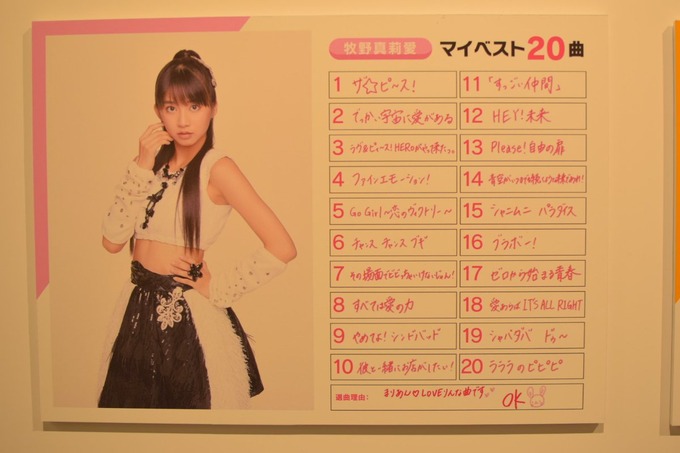 牧野真莉愛 マイベスト20曲
1 ザ☆ピ〜ス!
2 でっかい宇宙に愛がある
3 ラヴ&ピィ〜ス!HEROがやって来たっ。
4 ファインエモーション!
5 Go Girl〜恋のヴィクトリー〜
6 チャンス チャンス ブギ
7 その場面でビビっちゃいけないじゃん!
8 すべては愛の力
9 やめてよ!シンドバッド
10 彼と一緒にお店がしたい!
11 「すっごい仲間」
12 HEY!未来
13 Please!自由の扉
14 青空がいつまでも続くような未来であれ!
15 シャニムニ パラダイス
16 ブラボー!
17 ゼロから始まる青春
18 愛あらば IT'S ALL RIGHT
19 シャバダバ ドゥ〜
20 ラララのピピピ
選曲理由: まりあんLOVEりんな曲です OK